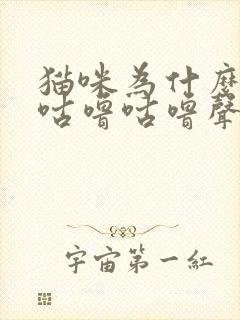 猫咪為什麼
咕嚕咕嚕聲
宇宙第一紅